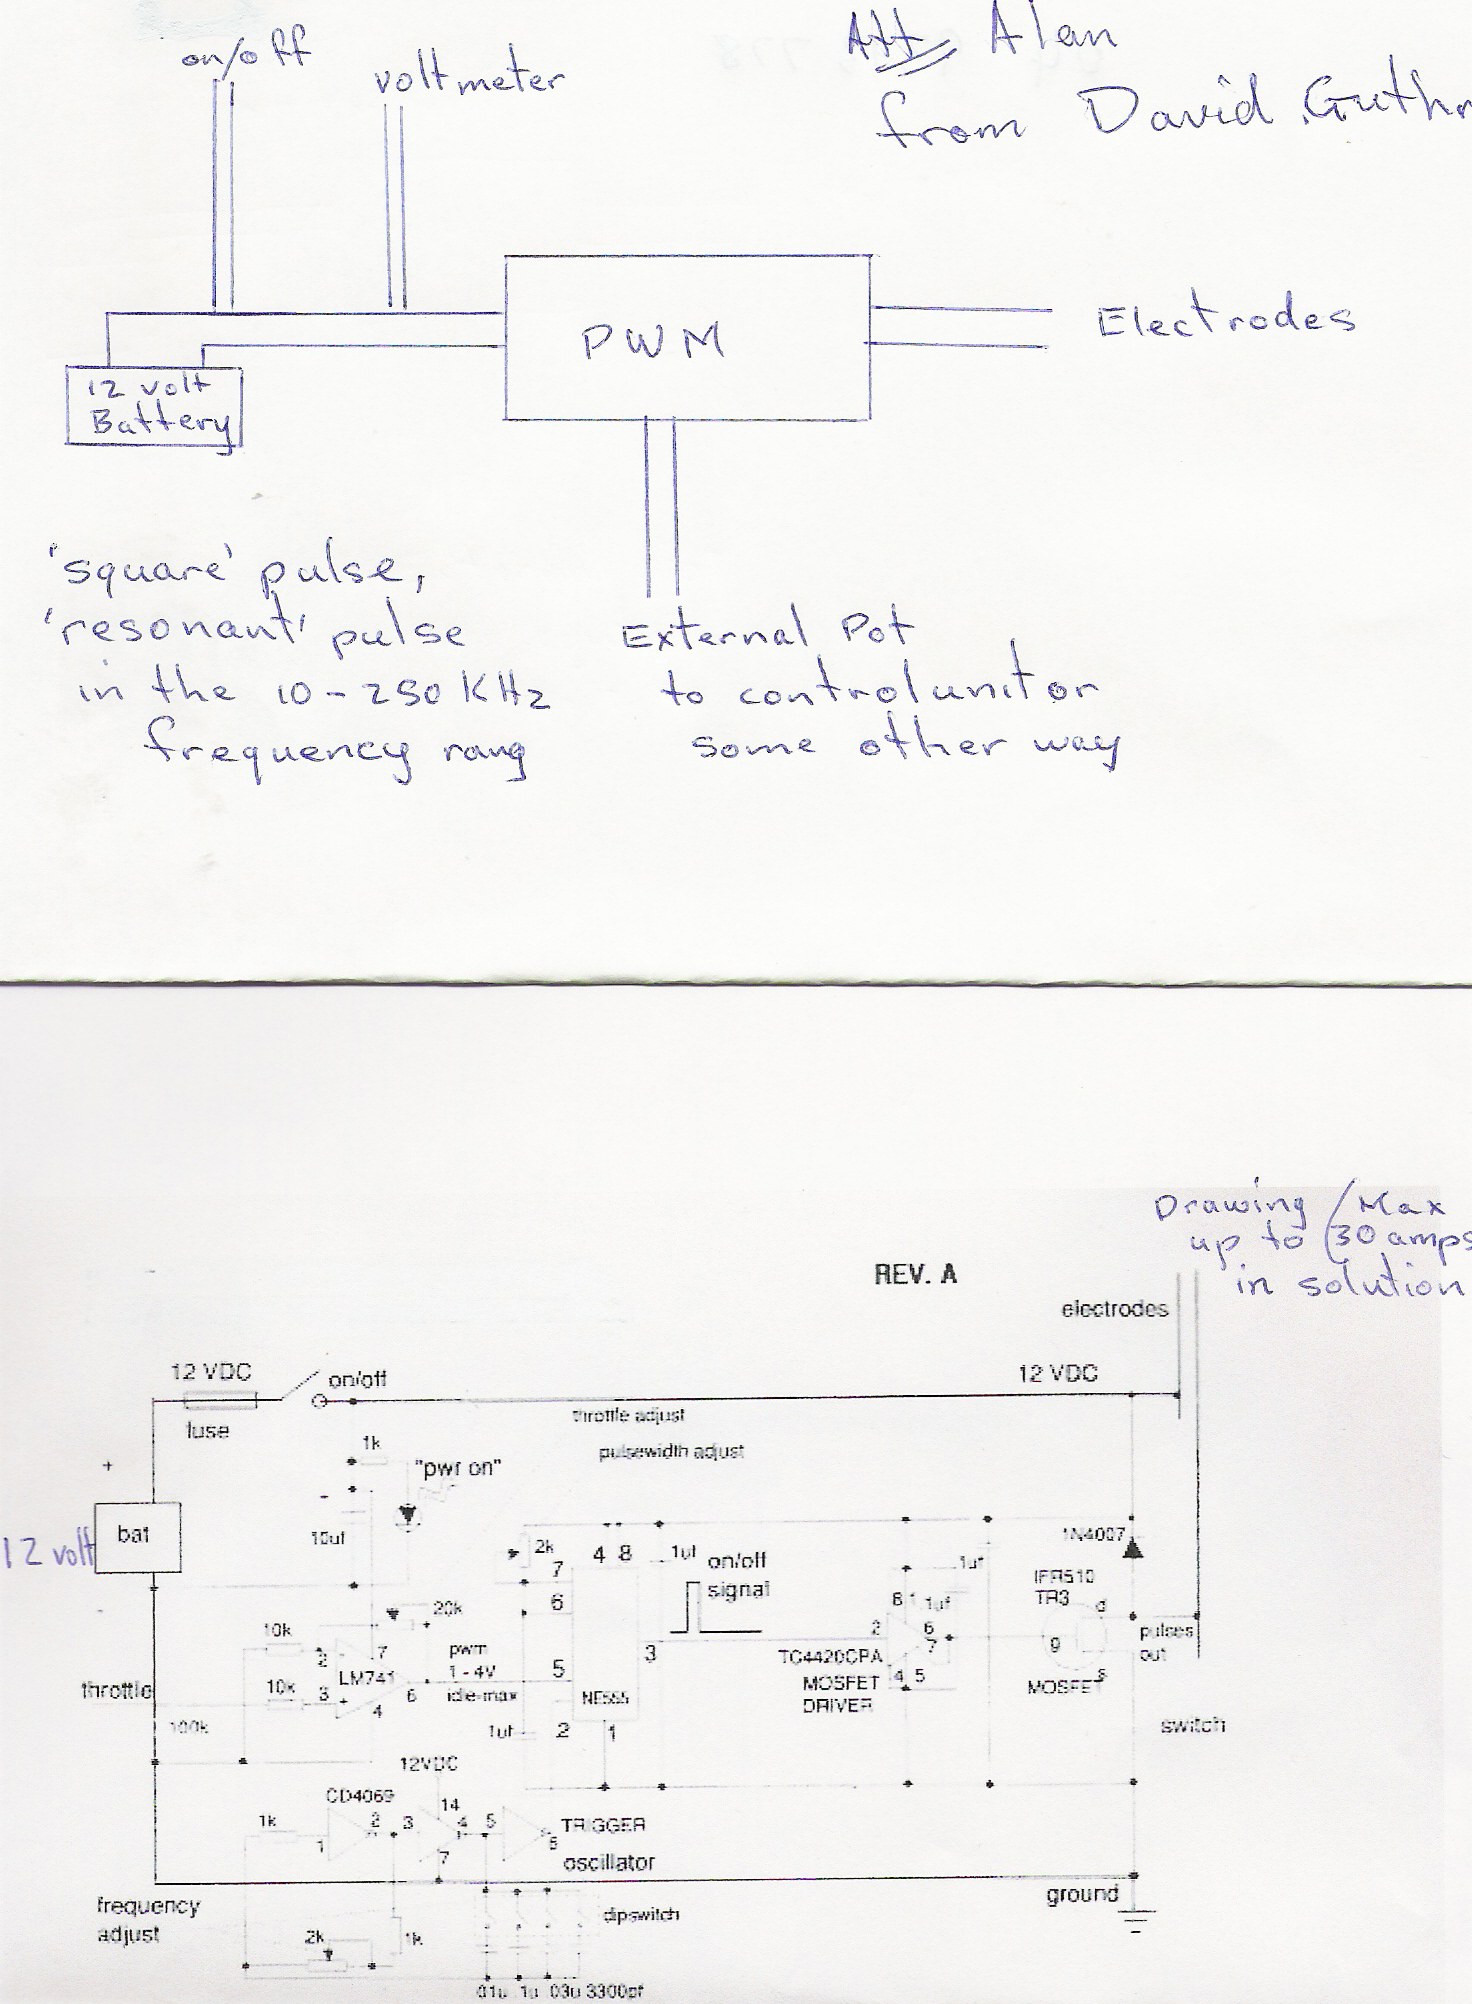 on/off
voltmeter
Att Alan
from David Guthr
PWM
Electrodes
12 volt
Battery
'square' pulse,
'resonant' pulse
in the 10-250 KHz
frequency rang
External Pot
to control unit or
some other way
Drawing / Max
up to (30 amps
in solution
REV. A
electrodes
12 VDC
on/off
12 VDC
fuse
throttle adjust
pulsewidth adjust
1k
"pwr on"
+
-
bat
12 volt
10uf
2k
7
4 8
1uf
on/off
signal
1uf
1N4007
6
8
1
1uf
TR3
d
20k
10k
2
7
pwm
1-4V
idle-max
LM741
3
+
4
6
10k
5
3
2
6
7
g
pulses
out
TC4420CPA
MOSFET
DRIVER
4 5
MOSFET
s
throttle
100k
NE555
1uf
2
1
switch
12VDC
CD4069
14
1k
1
2
3
4
5
7
6
TRIGGER
oscillator
frequency
adjust
2k
1k
dipswitch
ground
.01u .1u .03u 3300pf